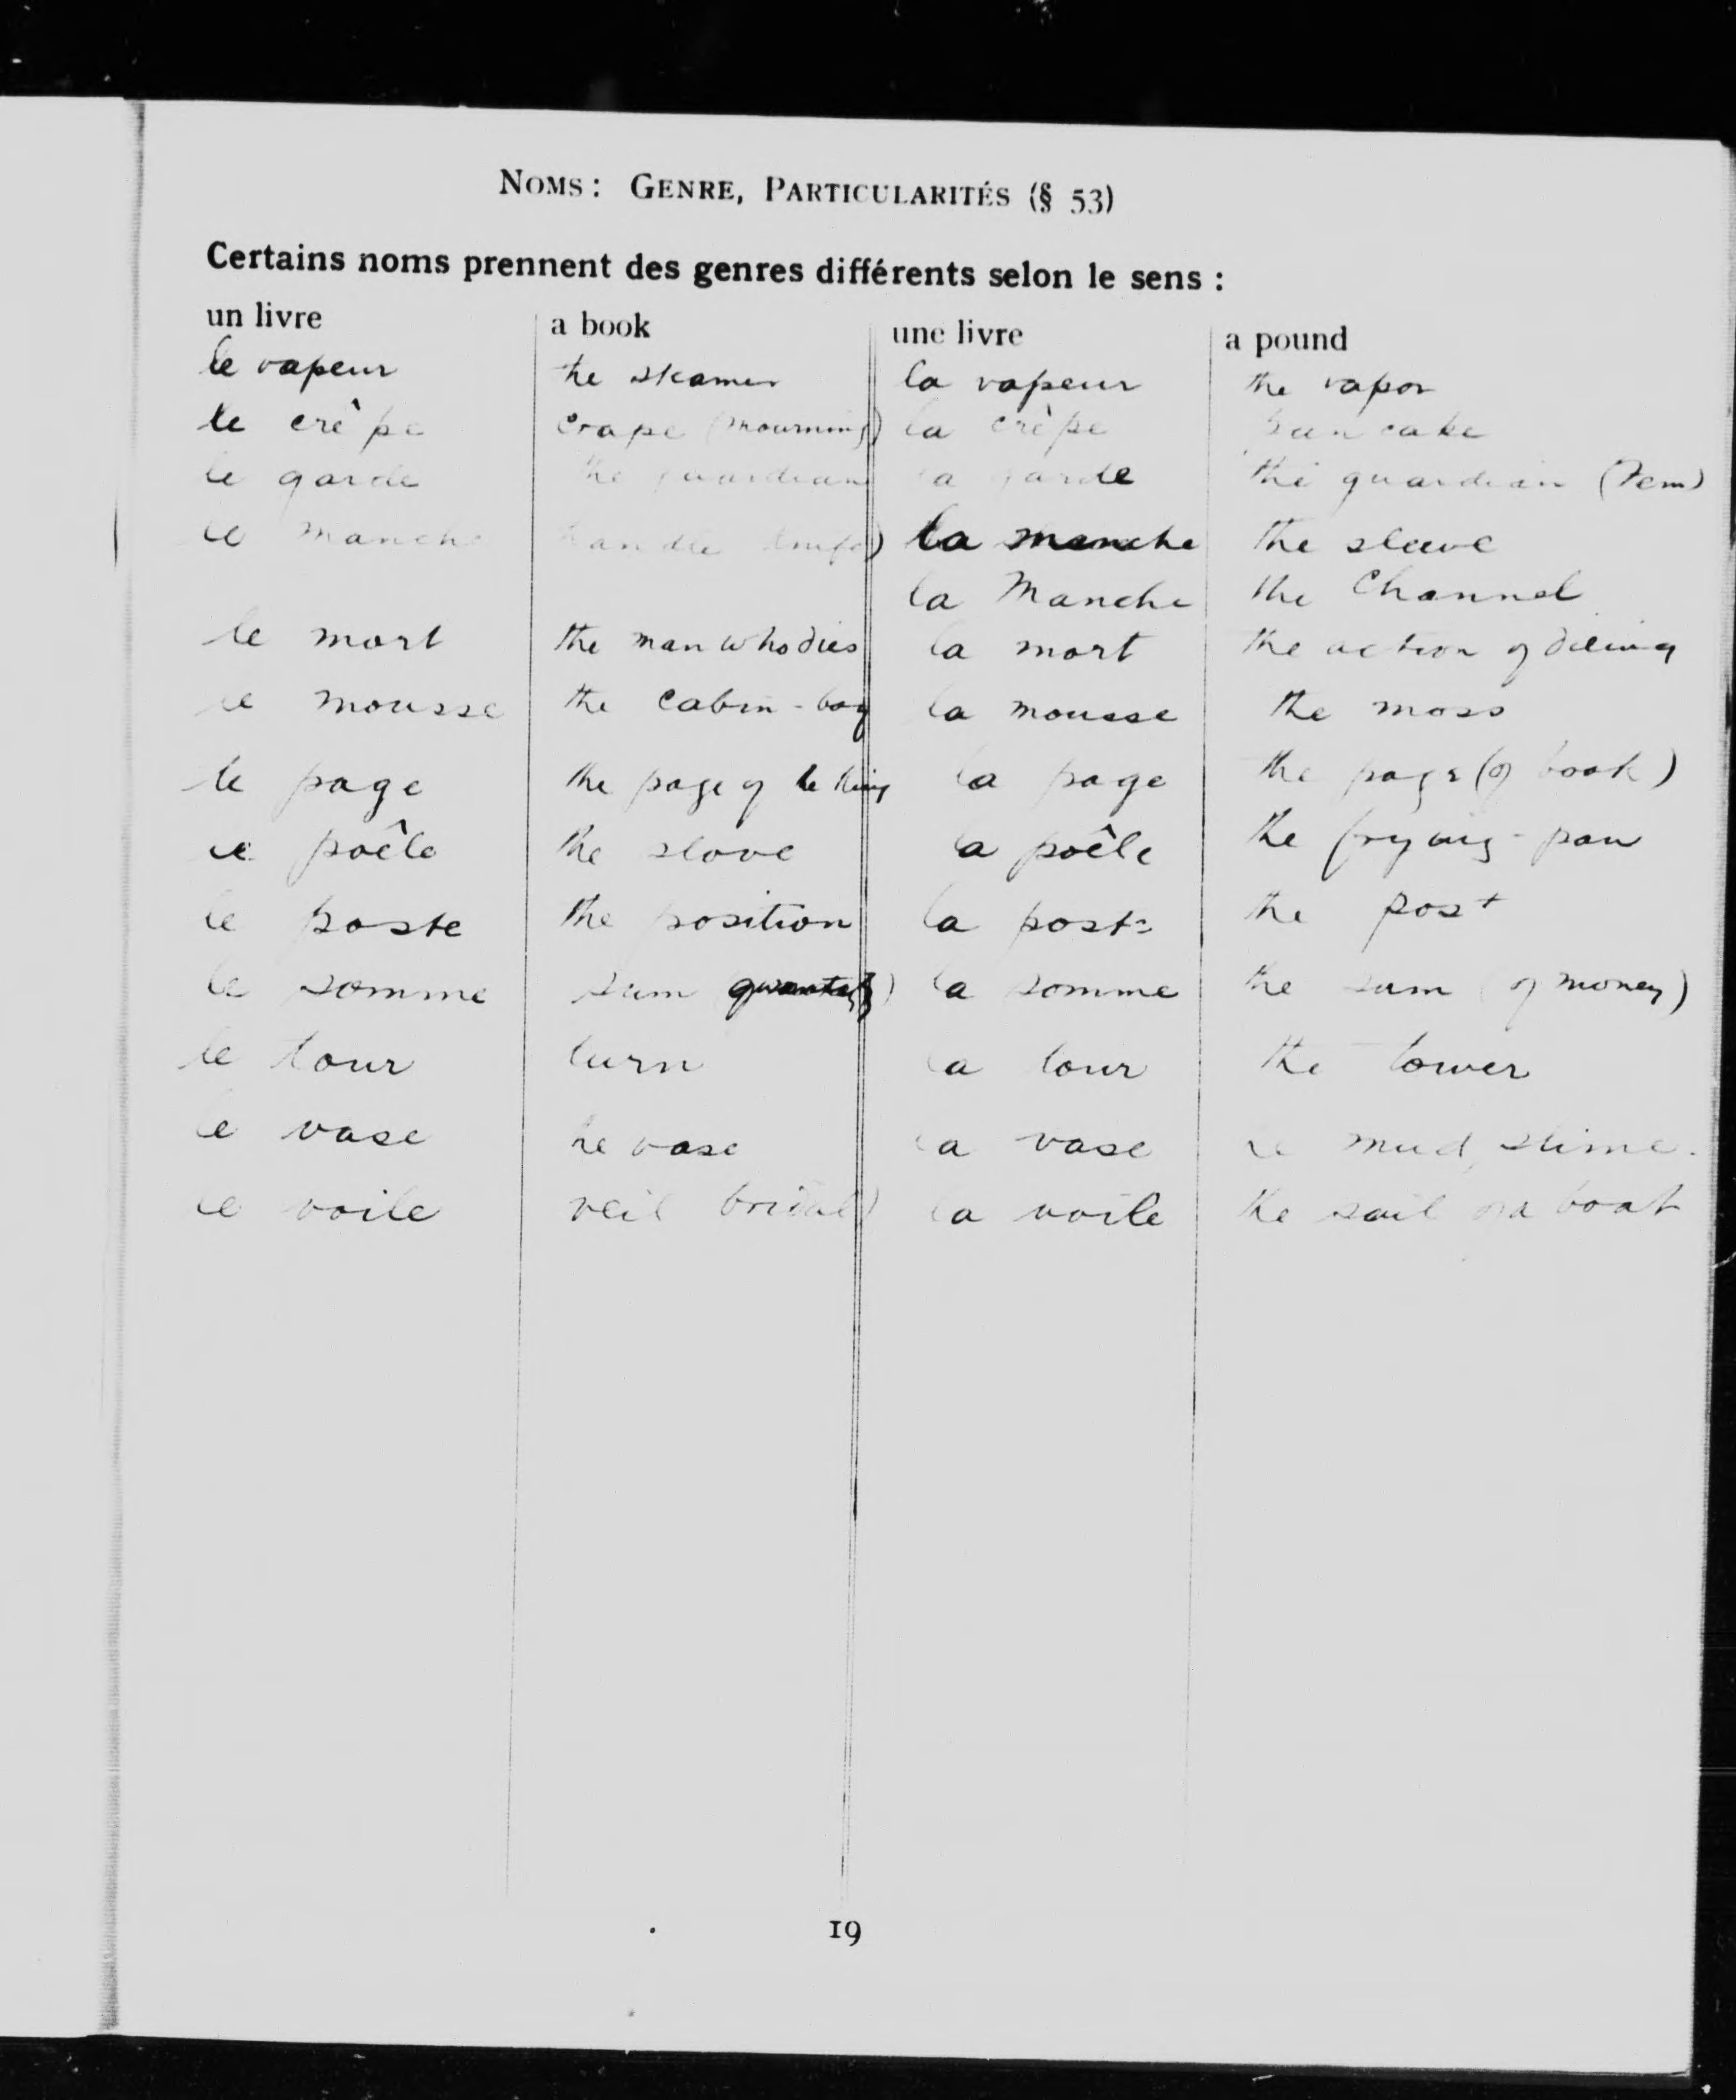 NOMS: GENRE, PARTICULARITÉS (§ 53)
Certains noms prennent des genres différents selon le sens :
un livre a book une livre a pound
le vapeur the steamer la vapeur the vapor
le crêpe crape (mourning) la crêpe pancake
le garde the guardian la garde the guardian (Fem)
le manche handle (knife) la manche the sleeve
la Manche the Channel
le mort the man who dies la mort the action of dieing
le mousse the cabin-boy la mousse the moss
le page the page of the King la page the page (of book)
le poêle the stove la poêle the frying-pan
le poste the position la poste the post
le somme sum (quantity) la somme the sum (of money)
le tour turn la tour the tower
le vase the vase la vase the mud, slime.
le voile veil bridal) la voile the sail of a boat
19